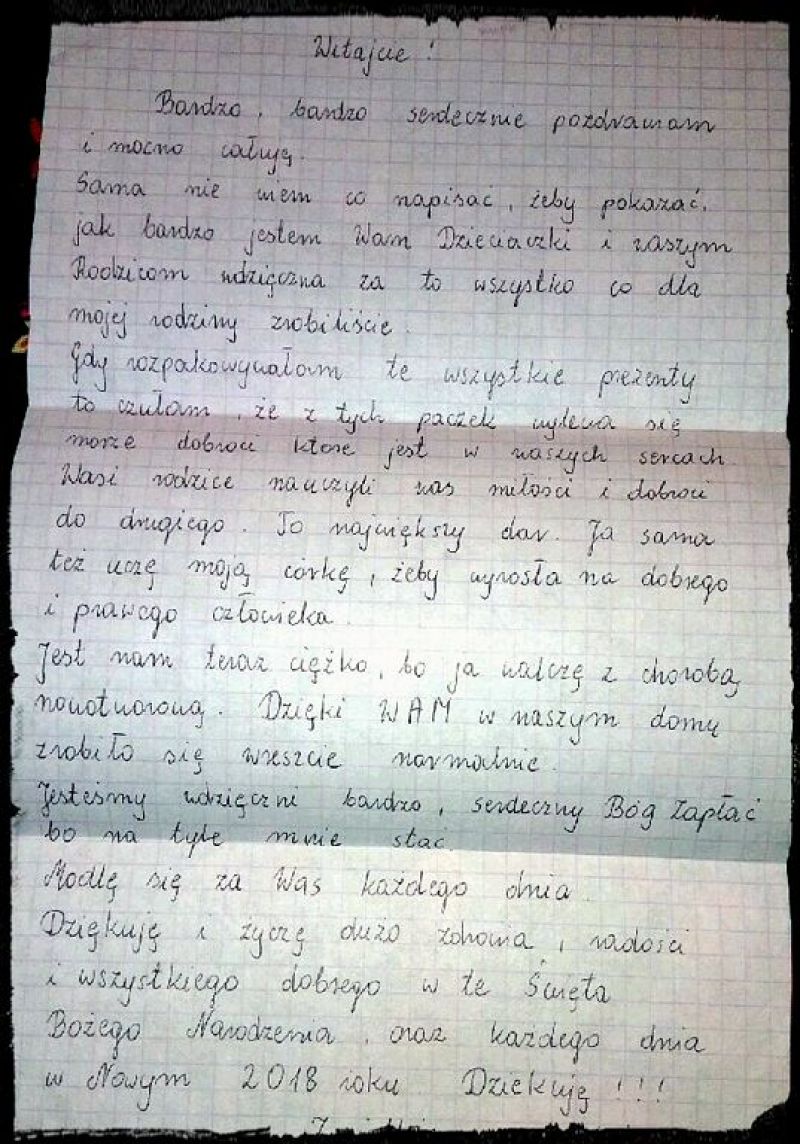 Witajcie !
Bardzo, bardzo serdecznie pozdrawiam
i mocno całuję.
Sama nie wiem co napisać, żeby pokazać,
jak bardzo jestem Wam Dzieciaczki i waszym
Rodzicom wdzięczna za to wszystko co dla
mojej rodziny zrobiliście.
Gdy rozpakowywałam te wszystkie prezenty
to czułam, że z tych paczek wylewa się
morze dobroci które jest w waszych sercach.
Wasi rodzice nauczyli was miłości i dobroci
do drugiego. To największy dar. Ja sama
też uczę moją córkę, żeby wyrosła na dobrego
i prawego człowieka.
Jest nam teraz ciężko, bo ja walczę z chorobą
nowotworową. Dzięki WAM w naszym domu
zrobiło się wreszcie normalnie.
Jesteśmy wdzięczni bardzo, serdeczny Bóg Zapłać
bo na tyle mnie stać.
Modlę się za Was każdego dnia.
Dziękuję i życzę dużo zdrowia, radości
i wszystkiego dobrego w te Święta
Bożego Narodzenia, oraz każdego dnia
w Nowym 2018 roku. Dziekuję !!!